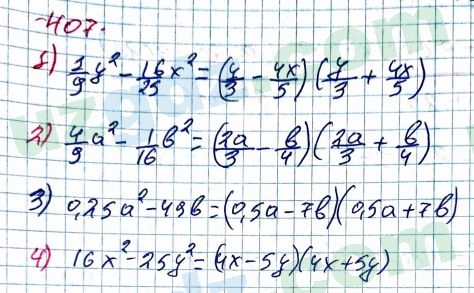 407.
1) 1/9 y² - 16/25 x² = (y/3 - 4x/5) (y/3 + 4x/5)
2) 4/9 a² - 1/16 b² = (2a/3 - b/4) (2a/3 + b/4)
3) 0,25a² - 49b = (0,5a - 7b) (0,5a + 7b)
4) 16x² - 25y² = (4x - 5y)(4x + 5y)